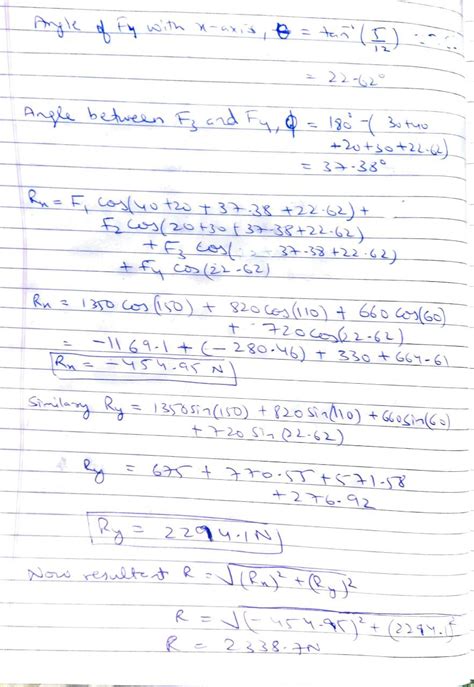 Angle of F4 with x-axis, θ = tan⁻¹(5/12)
= 22.62°
Angle between F3 and F4, ϕ = 180° - (30+40
+20+30+22.62)
= 37.38°
Rx = F1 cos(40+20+37.38+22.62)+
F2 cos(20+30+37.38+22.62)
+ F3 cos( 37.38+22.62)
+ F4 cos(22.62)
Rx = 1350 cos(150) + 820 cos(110) + 660 cos(60)
+ 720 cos(22.62)
= -1169.1 + (-280.46) + 330 + 664.61
Rx = -454.95 N
Similary Ry = 1350 sin(150) + 820 sin(110) + 660 sin(60)
+ 720 sin(22.62)
Ry = 675 + 770.55 + 571.58
+ 276.92
Ry = 2294.1N
Now resultant R = √(Rx)² + (Ry)²
R = √(-454.95)² + (2294.1)²
R = 2338.7N